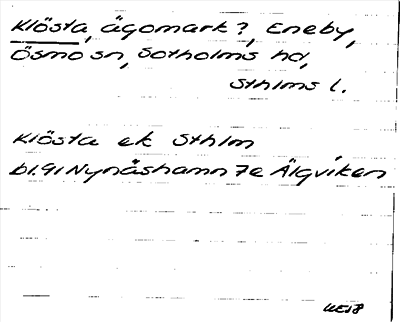 Klösta, ägomark?, Eneby,
Ösmo sn, Sotholms hd,
Sthlms l.
Klösta ek Sthlm
bl.91 Nynäshamn 7e Älgviken